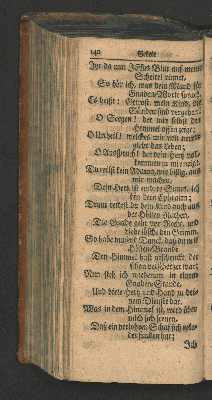 140 Gebete
Jur da und JEsus Blut auf meine
Scheitel rinnet,
So hör ich, was dein Mund für
Gnaden-Worte sprach:
Es heißt: Getrost, mein Kind, die
Sünden sind vergeben:
O Seegen! der mir selbst den
Himmel offen zeigt:
O Urtheil! welches mir von neuem
giebt das Leben;
O Ausspruch! der dein Hertz voll-
kommen zu mir neigt.
Du reist kein Adams, wer billig, aus
mir machen,
Dein Hertz ist anders Sinns, ich
bin dein Ephraim;
Drum reissest du dein Kind auch aus
der Höllen Rachen,
Die Gnade geht vor Recht, und
dieser löscht den Grimm.
So habe tausend Danck, daß du mir
Höllen-Brande
Den Himmel hast geschenckt, der
schon verschertzet war;
Nun steh ich wiederum in einem
Gnaden-Stande,
Und biete Hertz und Hand zu dei-
nem Dienste dar.
Was in dem Himmel ist, wird über
mich sich freuen,
Daß ein verlohrnes Schaaf sich wie-
der funden hat;
Ich